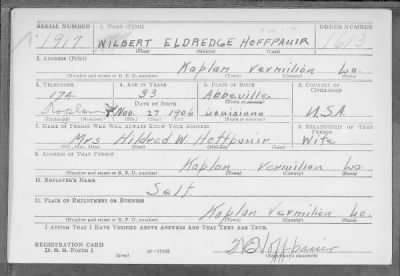 SERIAL NUMBER 1. NAME (Print) ORDER NUMBER
1917 WILBERT ELDREDGE HOFFPAUIR 1613
(First) (Middle) (Last)
2. ADDRESS (Print)
Kaplan Vermilion La.
(Number and street or R. F. D. number) (Town) (County) (State)
3. TELEPHONE 4. AGE IN YEARS 5. PLACE OF BIRTH 6. COUNTRY OF CITIZENSHIP
174 33 Abbeville
DATE OF BIRTH (Town or county)
Kaplan Nov. 27 1906 Louisiana U.S.A.
(Exchange) (Number) (Mo.) (Day) (Yr.) (State or country)
7. NAME OF PERSON WHO WILL ALWAYS KNOW YOUR ADDRESS 8. RELATIONSHIP OF THAT PERSON
Mrs Hildred W. Hoffpauir Wife
(Mr., Mrs., Miss) (First) (Middle) (Last)
9. ADDRESS OF THAT PERSON
Kaplan Vermilion La.
(Number and street or R. F. D. number) (Town) (County) (State)
10. EMPLOYER'S NAME
Self
11. PLACE OF EMPLOYMENT OR BUSINESS
Kaplan Vermilion La.
(Number and street or R. F. D. number) (Town) (County) (State)
I AFFIRM THAT I HAVE VERIFIED ABOVE ANSWERS AND THAT THEY ARE TRUE.
REGISTRATION CARD
D. S. S. Form 1 (over) Hoffpauir
(Registrant's signature)